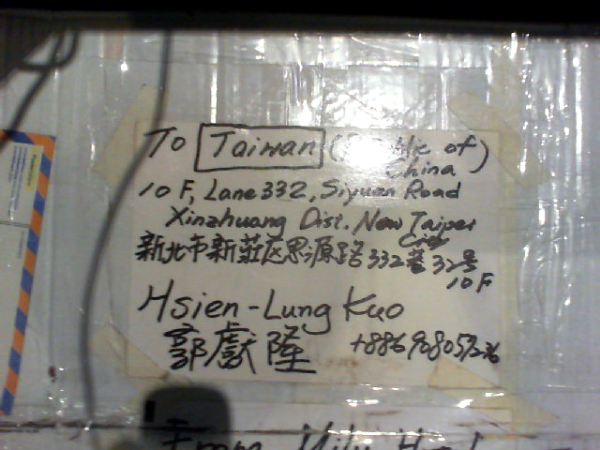 To Taiwan (Republic of
China)
10F, Lane 332, Siyuan Road
Xinzhuang Dist. New Taipei
City
新北市新莊区思源路332巷32号
10F
Hsien-Lung Kuo
郭獻隆
From